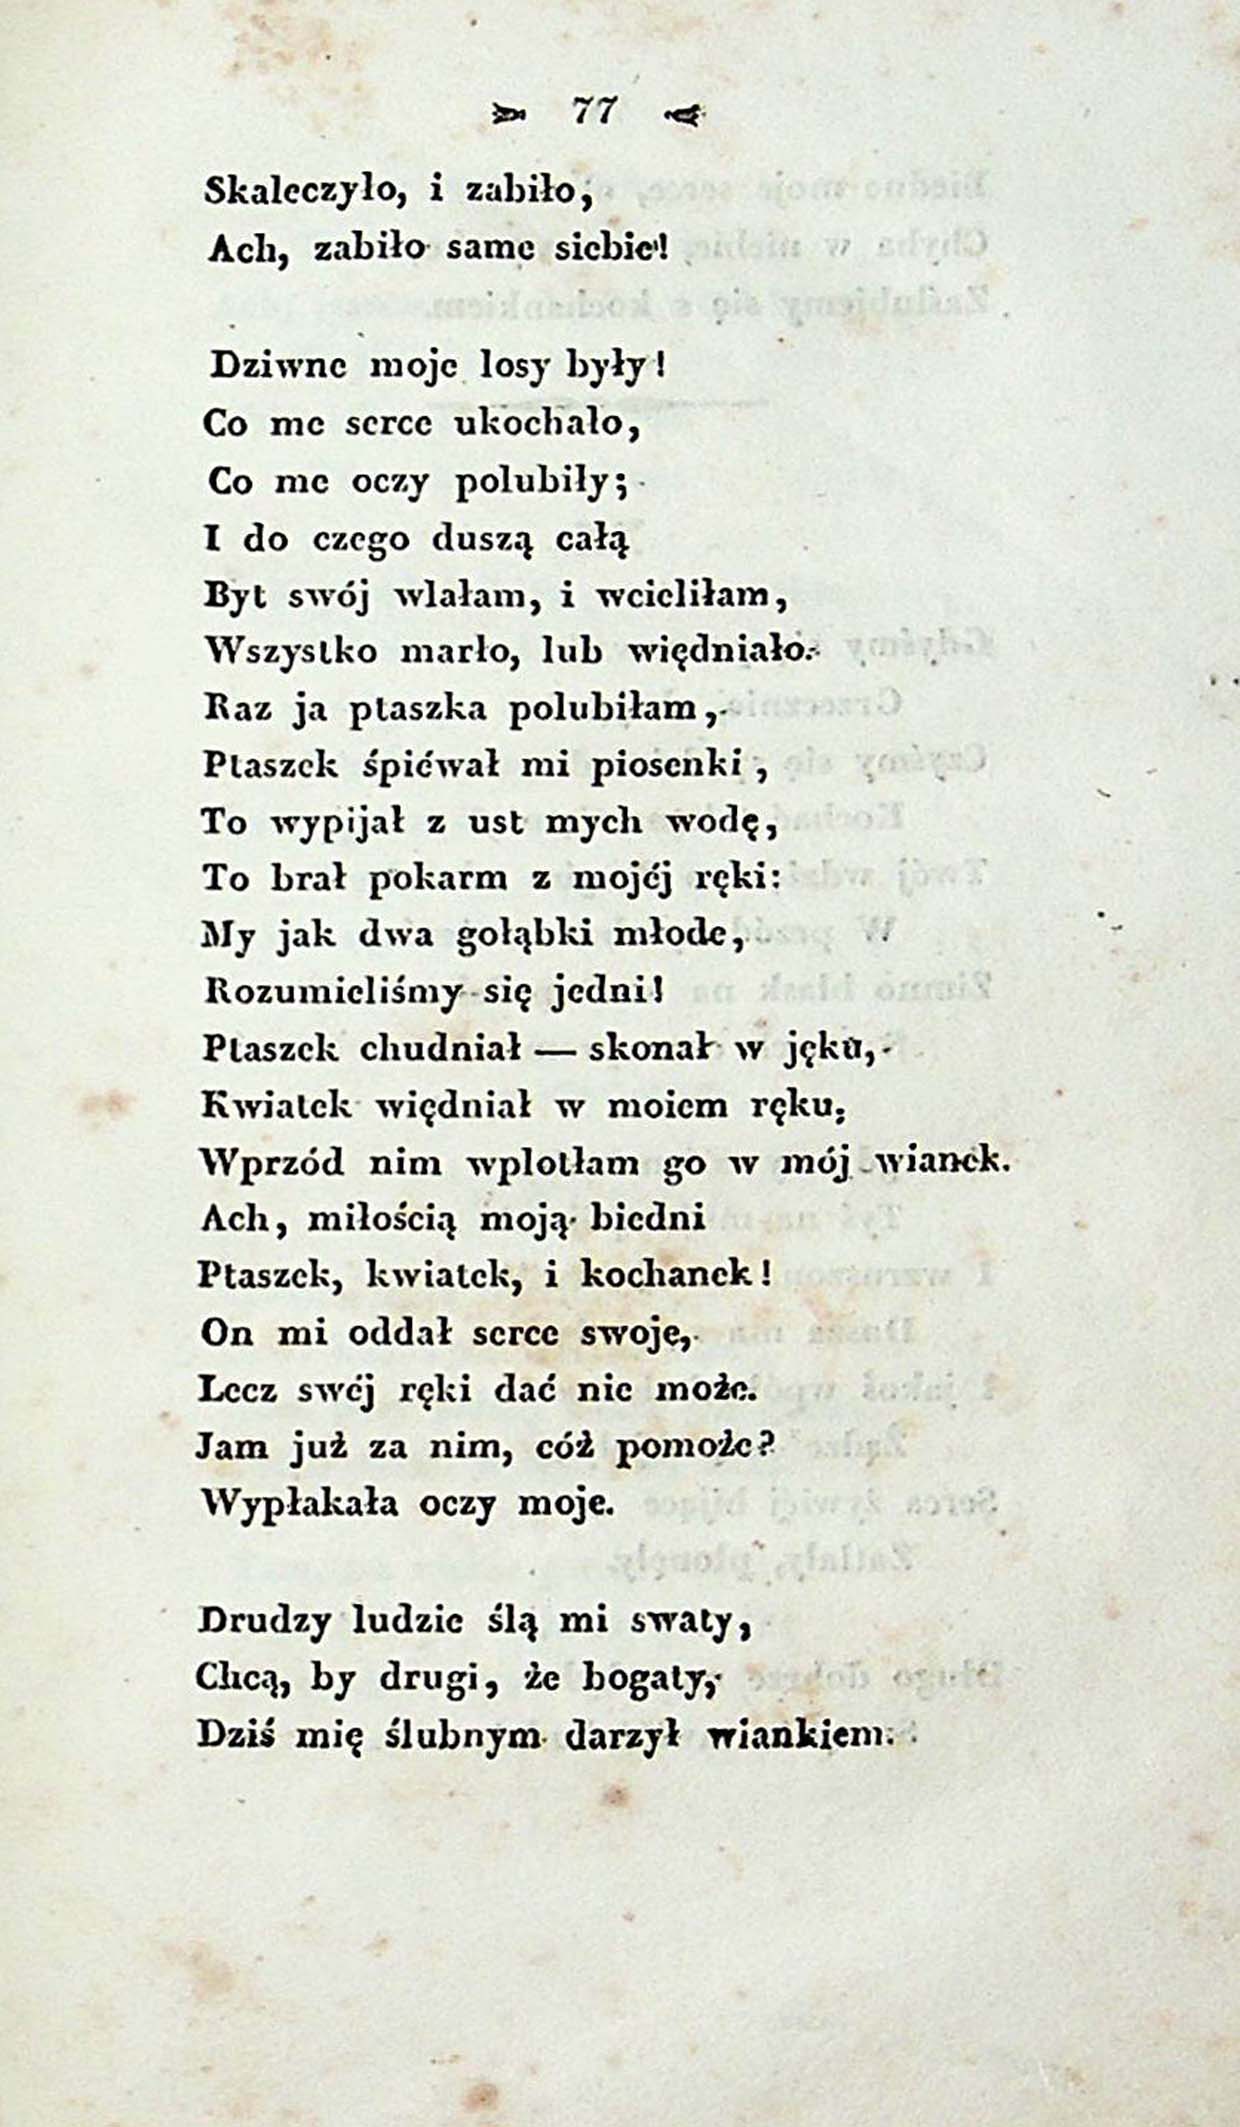 77
Skaleczyło, i zabiło,
Ach, zabiło same siebie!
Dziwne moje losy były!
Co me serce ukochało,
Co me oczy polubiły;
I do czego duszą całą
Byt swój wlałam, i wcieliłam,
Wszystko marło, lub więdniało.
Raz ja ptaszka polubiłam,
Ptaszek śpiéwał mi piosenki,
To wypijał z ust mych wodę,
To brał pokarm z mojéj ręki:
My jak dwa gołąbki młode,
Rozumieliśmy się jedni!
Ptaszek chudniał — skonał w jęku,
Kwiatek więdniał w moiem ręku;
Wprzód nim wplotłam go w mój wianek.
Ach, miłością moją biedni
Ptaszek, kwiatek, i kochanek!
On mi oddał serce swoje,
Lecz swéj ręki dać nie może.
Jam już za nim, cóż pomoże?
Wypłakała oczy moje.
Drudzy ludzie ślą mi swaty,
Chcą, by drugi, że bogaty,
Dziś mię ślubnym darzył wiankiem.